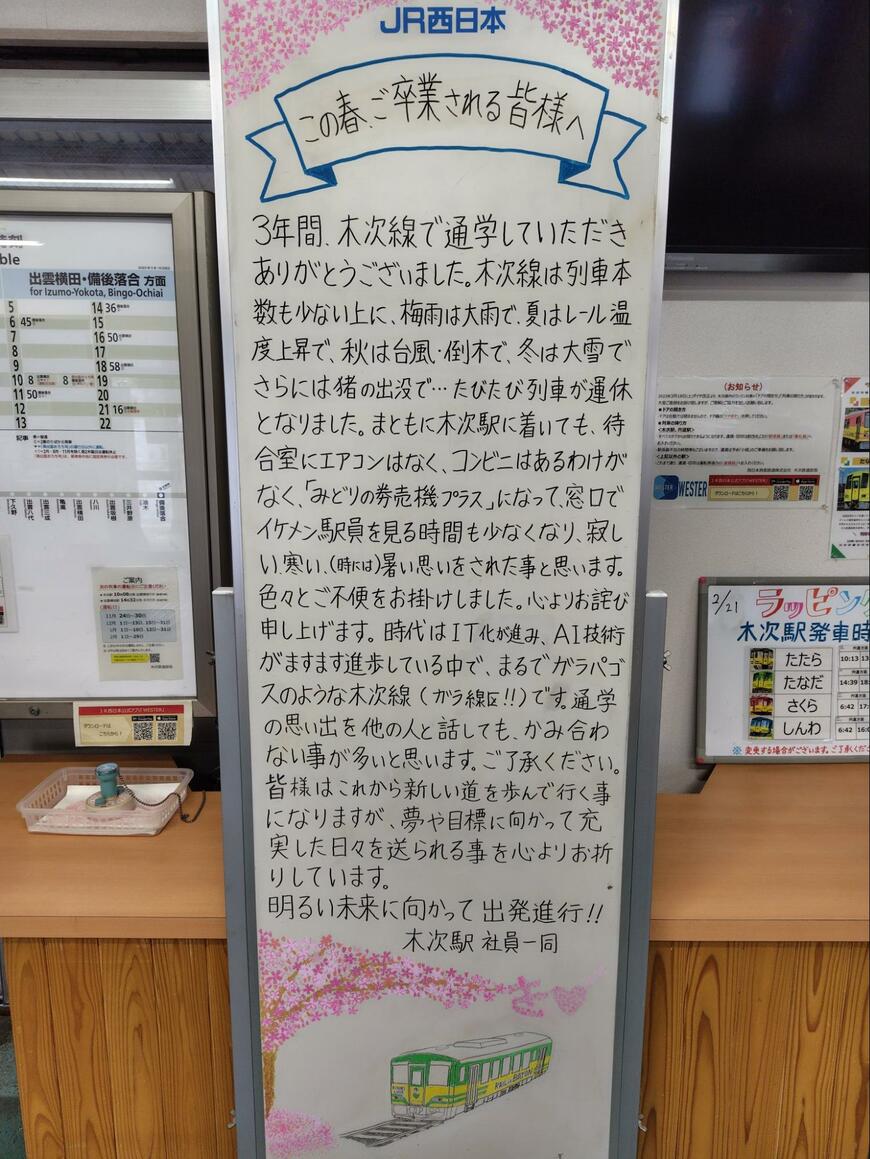 JR西日本
この春、ご卒業される皆様へ
3年間、木次線で通学していただき
ありがとうございました。木次線は列車本
数も少ない上に、梅雨は大雨で、夏はレール温
度上昇で、秋は台風・倒木で、冬は大雪で
さらには猪の出没で…たびたび列車が運休
となりました。まともに木次駅に着いても、待
合室にエアコンはなく、コンビニはあるわけが
なく、「みどりの券売機プラス」になって、窓口で
イケメン駅員を見る時間も少なくなり、寂し
い、寒い、(時には)暑い思いをされた事と思います。
色々とご不便をお掛けしました。心よりお詫び
申し上げます。時代はIT化が進み、AI技術
がますます進歩している中で、まるでガラパゴ
スのような木次線(ガラ線区!!)です。通学
の思い出を他の人と話しても、かみ合わ
ない事が多いと思います。ご了承ください。
皆様はこれから新しい道を歩んで行く事
になりますが、夢や目標に向かって充
実した日々を送られる事を心よりお祈
りしています。
明るい未来に向かって出発進行!!
木次駅 社員一同
刻
ble
出雲横田・備後落合 方面
for Izumo-Yokota, Bingo-Ochiai
5
6 45
7
8
9
10 8 8
11 50
12
13
14 36
15
16 50
17
18 58
19
20
21 16
22
記事
下久野
出雲八代
出雲三成
亀嵩
八川
出雲坂根
三井野原
油木
備後落合
ご案内
11月 24日~30日
2月 1日~29日
JR西日本公式アプリ「WESTER」
ダウンロードは
こちらから!
(お知らせ)
WESTER
JR西日本公式アプリ「WESTER」
ダウンロードはこちらから!
2/21
ラッピング
木次駅発車時
たたら
10:13
たなだ
14:39
さくら
6:42
しんわ
6:42
※変更する場合がございます。ご了承くださ